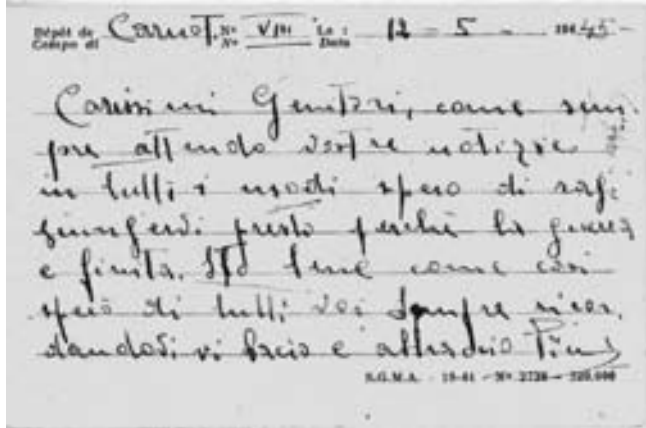 Dépôt de Carnot Nº VIII Le : 12 - 5 - 194 45
Campo di Nº Data
Carissimi Genitori, come sem-
pre attendo vostre notizie
in tutti i modi spero di rag-
giungervi presto perché la guerra
e finita. Sto bene come così
spero di tutti voi sempre ricor-
dandovi vi bacio e abbraccio
S.G.M.A. - 10-41 - Nº 2728 - 520.000